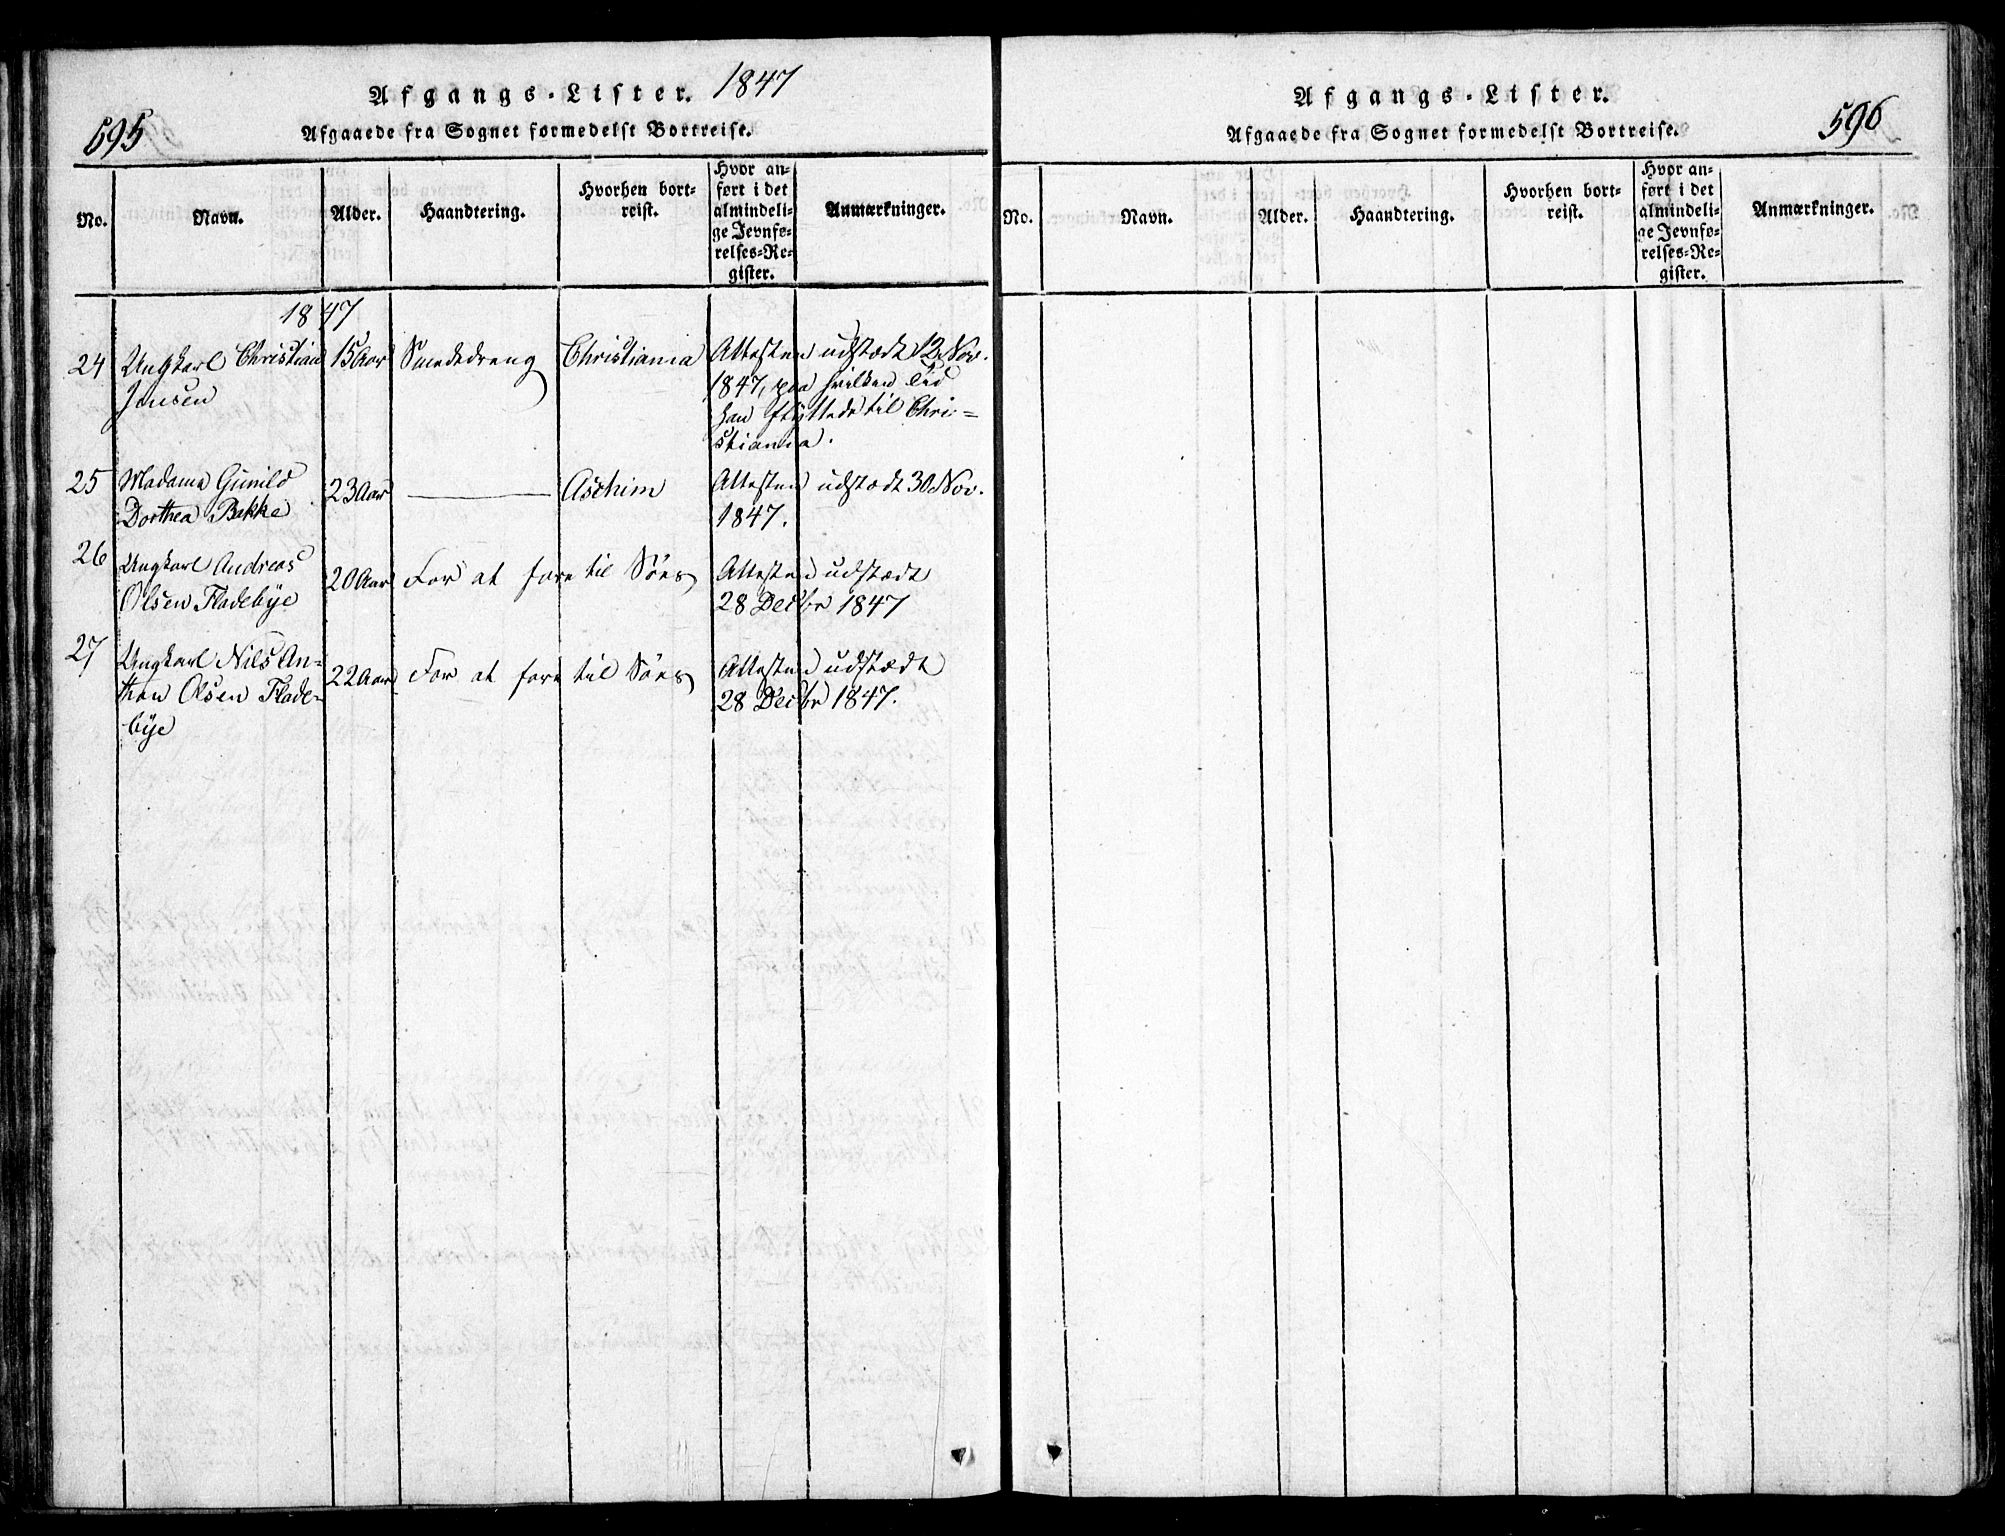 Afgangs-Lister. 1847
595
Afgaaede fra Sognet formedelst Bortreise.
No.
Navn.
Alder.
Haandtering.
Hvorhen bort-
reist.
Hvor an-
ført i det
almindeli-
ge Jevnfø-
relses-Re-
gister.
Anmærkninger.
1847
24 Ungkarl Christian 15 Aar Smededreng Christiania Attesten udstædt 12 Nov.
Jensen
1847, paa hvilken Tid
han flyttede til Chri-
stiania.
25 Madame Gunild
Dorthea Bakke 23 Aar Aschim Attesten udstædt 30 Nov.
1847.
26 Ungkarl Andreas
Olsen Fladebÿe 20 Aar For at fare til Söes Attesten udstædt
28 Decbr 1847
27 Ungkarl Nils An-
thon Olsen Flade-
bÿe 22 Aar For at fare til Söes Attesten udstædt
28 Decbr 1847.
Afgangs-Lister.
596
Afgaaede fra Sognet formedelst Bortreise.
No.
Navn.
Alder.
Haandtering.
Hvorhen bort-
reist.
Hvor an-
ført i det
almindeli-
ge Jevnfø-
relses-Re-
gister.
Anmærkninger.